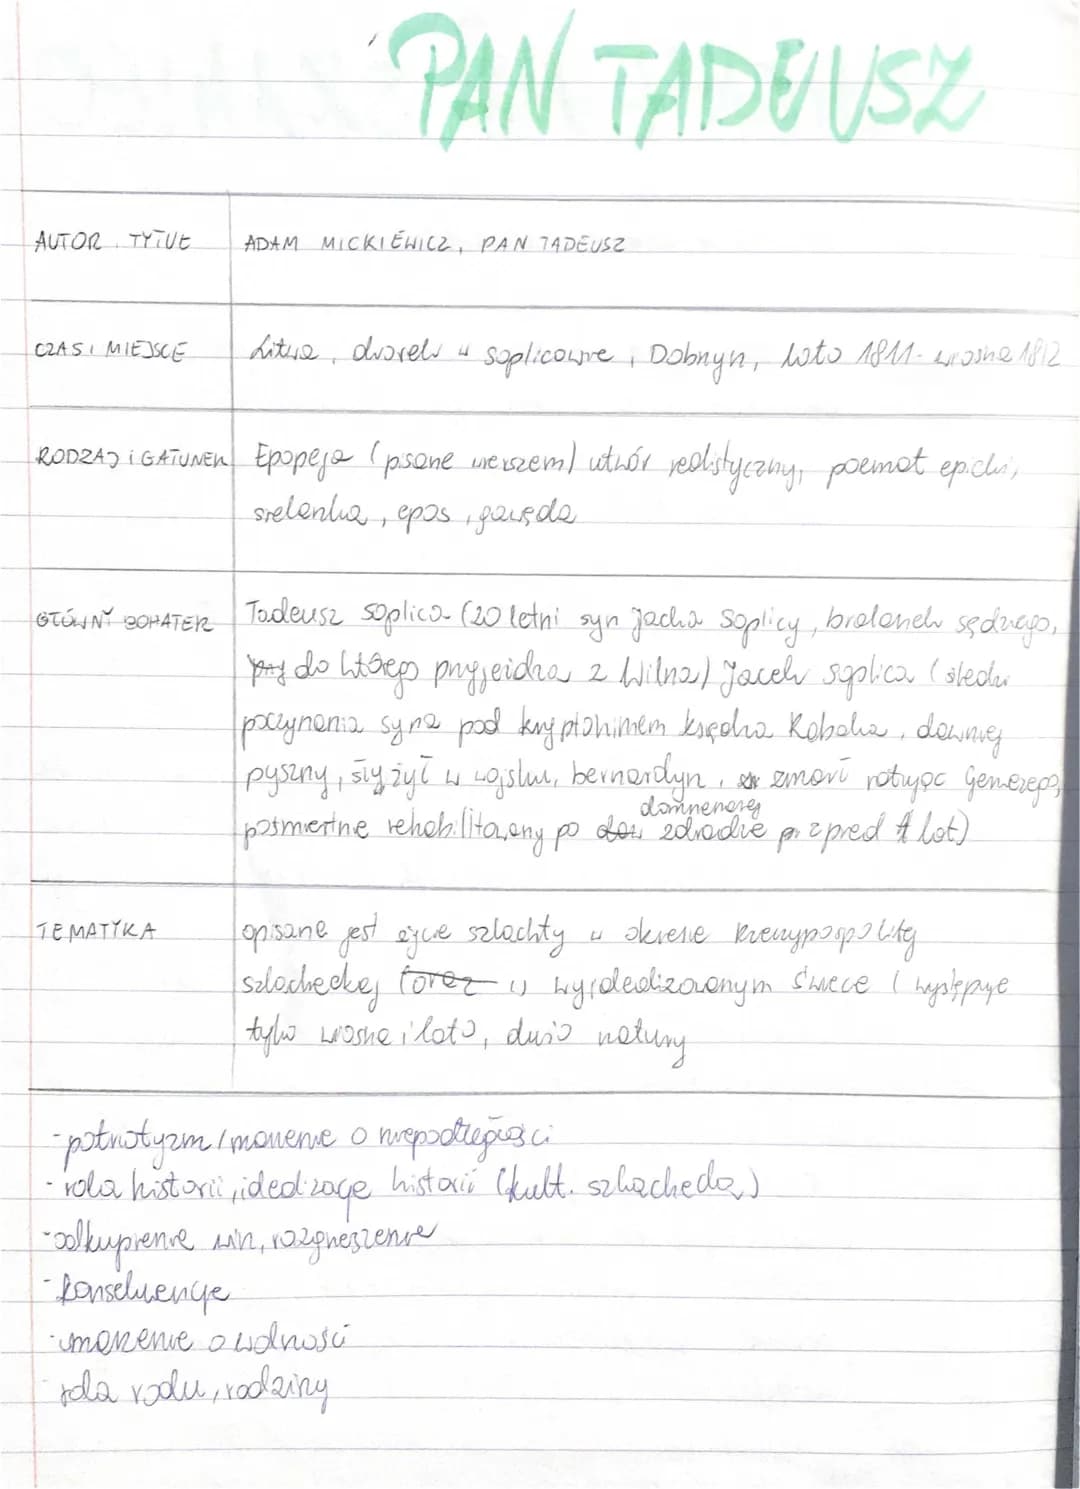 PAN TADEUSZ
AUTOR, TYTUŁ
ADAM MICKIEWICZ, PAN TADEUSZ
CZAS I MIEJSCE
Litwa, dworek w soplicowie, Dobrzyn, lato 1811 - wiosna 1812
RODZAJ i GATUNEK
Epopeja (pisane wierszem) utwór realistyczny, poemat epicki,
sielanka, epos, gawęda
GŁÓWNY BOHATER
Tadeusz soplica (20 letni syn Jacka Soplicy, bratanek sędziego,
do którego przyjeżdża z Wilna) Jacek soplica (śledzi
poczynania syna pod kryptonimem księdza Robaka, dawniej
pyszny, służył w wojsku, bernardyn, zmarł ratując Gerwazego,
pośmiertnie rehabilitowany po domniemanej zdradzie sprzed lat)
TEMATYKA
opisane jest życie szlachty w okresie Rzeczypospolitej
szlacheckiej oraz w wyidealizowanym świecie (występuje
tylko wiosna i lato, dużo natury
- patriotyzm / marzenie o niepodległości
- rola historii, idealizacje historii (kult. szlachecka)
- odkupienie win, rozgrzeszenie
- konsekwencje
- marzenie o wolności
- rola rodu, rodziny